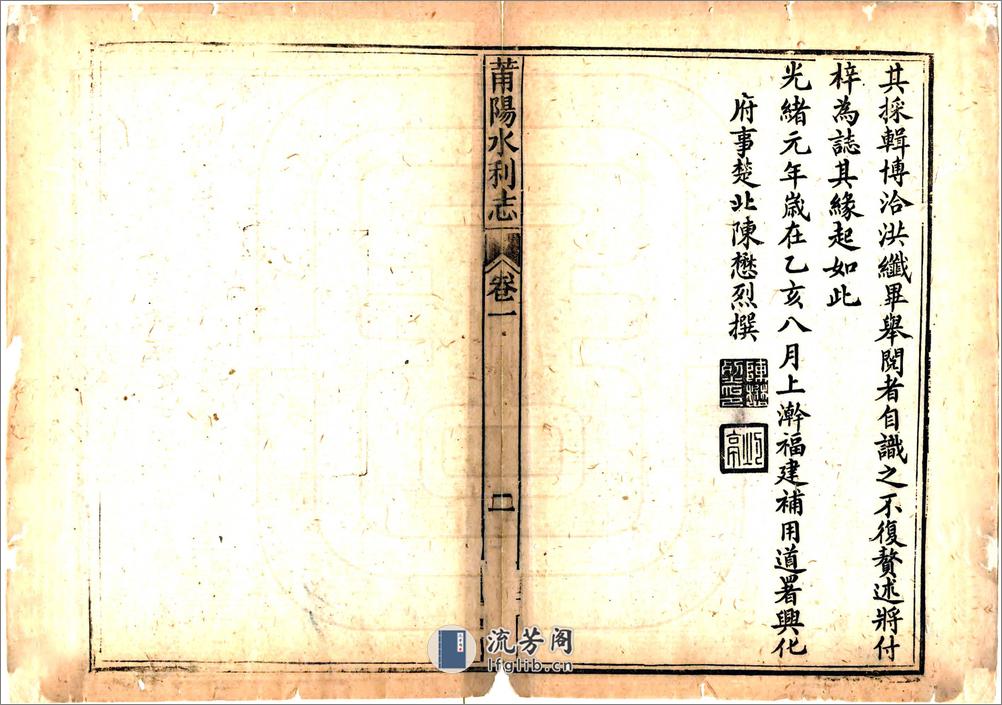 其採輯博洽洪纖畢舉閱者自識之不復贅述將付
梓為誌其緣起如此
光緒元年歲在乙亥八月上澣福建補用道署興化
府事楚北陳懋烈撰
莆陽水利志
卷一
二
流芳阁
lfglib.cn